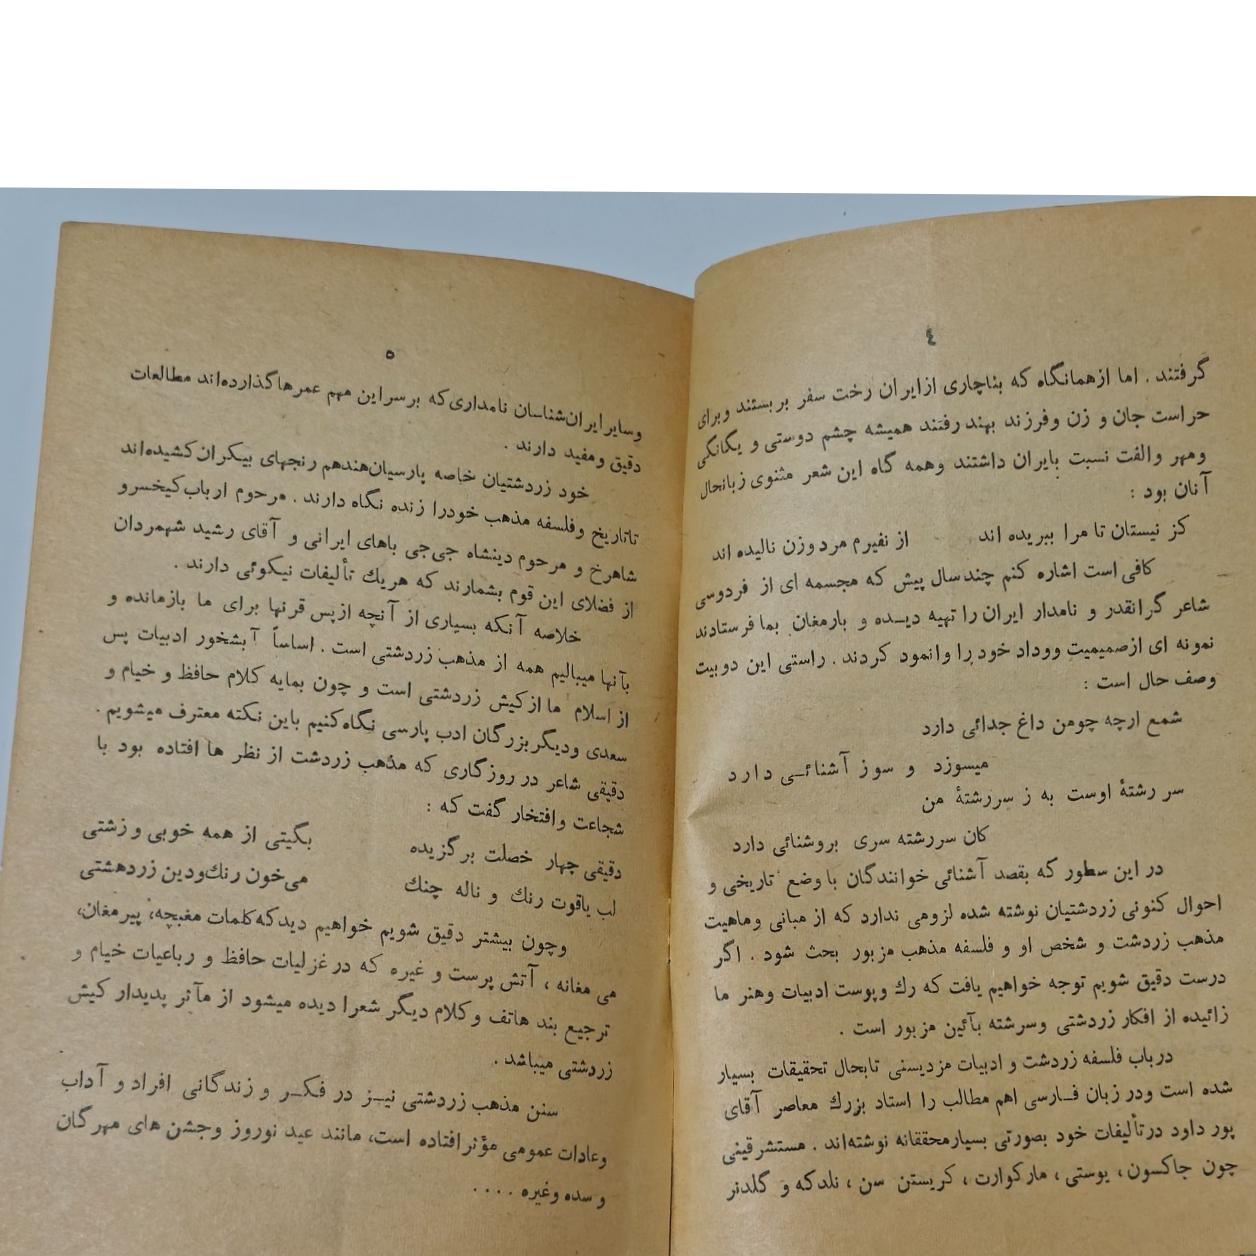 ٤
گرفتند . اما ازهمانگاه که بناچاری ازایران رخت سفر بربستند وبرای
حراست جان و زن وفرزند بهند رفتند همیشه چشم دوستی و یگانگی
ومهر والفت نسبت بایران داشتند وهمه گاه این شعر مثنوی زبانحال
آنان بود :
کز نیستان تا مرا ببریده اند از نفیرم مردوزن نالیده اند
کافی است اشاره کنم چندسال پیش که مجسمه ای از فردوسی
شاعر گرانقدر و نامدار ایران را تهیه دیده و بارمغان بما فرستادند
نمونه ای ازصمیمیت ووداد خود را وانمود کردند . راستی این دوبیت
وصف حال است :
شمع ارچه چومن داغ جدائی دارد
میسوزد و سوز آشنائی دارد
سر رشتهٔ اوست به ز سررشتهٔ من
کان سررشته سری بروشنائی دارد
در این سطور که بقصد آشنائی خوانندگان با وضع تاریخی و
احوال کنونی زردشتیان نوشته شده لزومی ندارد که از مبانی وماهیت
مذهب زردشت و شخص او و فلسفه مذهب مزبور بحث شود . اگر
درست دقیق شویم توجه خواهیم یافت که رك وپوست ادبیات وهنر ما
زائیده از افکار زردشتی وسرشته بآئین مزبور است .
درباب فلسفه زردشت و ادبیات مزدیسنی تابحال تحقیقات بسیار
شده است ودر زبان فارسی اهم مطالب را استاد بزرك معاصر آقای
پور داود درتألیفات خود بصورتی بسیارمحققانه نوشته‌اند . مستشرقینی
چون جاکسون ، یوستی ، مارکوارت ، کریستن سن ، نلدکه و گلدنر
٥
وسایرایران‌شناسان نامداری‌که برسراین مهم عمرهاگذارده‌اند مطالعات
دقیق ومفید دارند .
خود زردشتیان خاصه پارسیان‌هندهم رنجهای بیکران‌کشیده‌اند
تاتاریخ وفلسفه مذهب خودرا زنده نگاه دارند . مرحوم ارباب‌کیخسرو
شاهرخ و مرحوم دینشاه جی‌جی باهای ایرانی و آقای رشید شهمردان
از فضلای این قوم بشمارند که هریك تألیفات نیکوئی دارند .
خلاصه آنکه بسیاری از آنچه ازپس قرنها برای ما بازمانده و
بآنها میبالیم همه از مذهب زردشتی است . اساساً آبشخور ادبیات پس
از اسلام ما ازکیش زردشتی است و چون بمایه کلام حافظ و خیام و
سعدی ودیگربزرگان ادب پارسی نگاه‌کنیم باین نکته معترف میشویم .
دقیقی شاعر در روزگاری که مذهب زردشت از نظر ها افتاده بود با
شجاعت وافتخار گفت که :
دقیقی چهار خصلت برگزیده بگیتی از همه خوبی وزشتی
لب یاقوت رنك و ناله چنك می‌خون رنك‌ودین زردهشتی
وچون بیشتر دقیق شویم خواهیم دیدکه‌کلمات مغبچه، پیرمغان،
می مغانه ، آتش پرست و غیره که درغزلیات حافظ و رباعیات خیام و
ترجیع بند هاتف وکلام دیگر شعرا دیده میشود از مآثر پدیدار کیش
زردشتی میباشد .
سنن مذهب زردشتی نیز در فکر و زندگانی افراد و آداب
وعادات عمومی مؤثرافتاده است، مانند عید نوروز وجشن های مهرگان
و سده وغیره . . . .